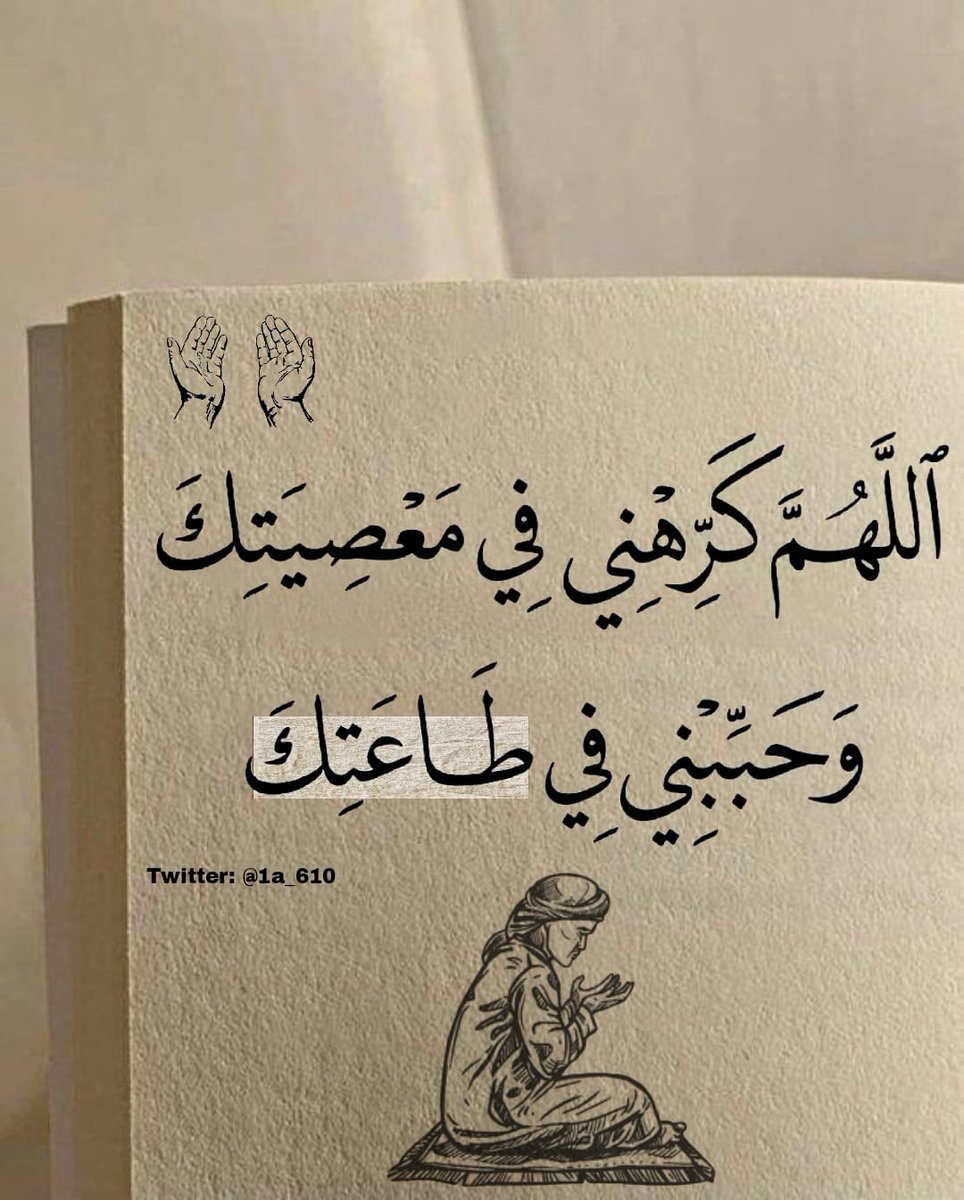 ٱللَّهُمَّ كَرِّهْنِي فِي مَعْصِيَتِكَ
وَحَبِّبْنِي فِي طَاعَتِكَ
Twitter: @1a_610